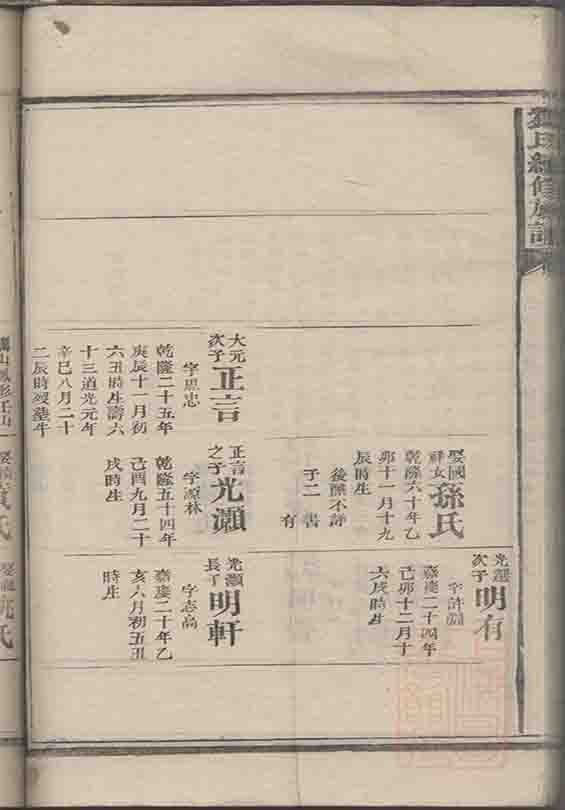 氏續修族譜
大元
次子
正言
字思忠
乾隆二十五年
庚辰十一月初
六丑時生壽六
十三道光元年
辛巳八月二十
二辰時歿塟牛
娶國
祥女
孫氏
乾隆六十年乙
卯十一月十九
辰時生
後醮不詳
子二 書
有
正言
之子
光灝
字源林
乾隆五十四年
己酉九月二十
戌時生
光選
次子
明有
字許
嘉慶二十四年
己卯十二月十
六戌時生
光灝
長子
明軒
字志高
嘉慶二十年乙
亥六月初五丑
時生